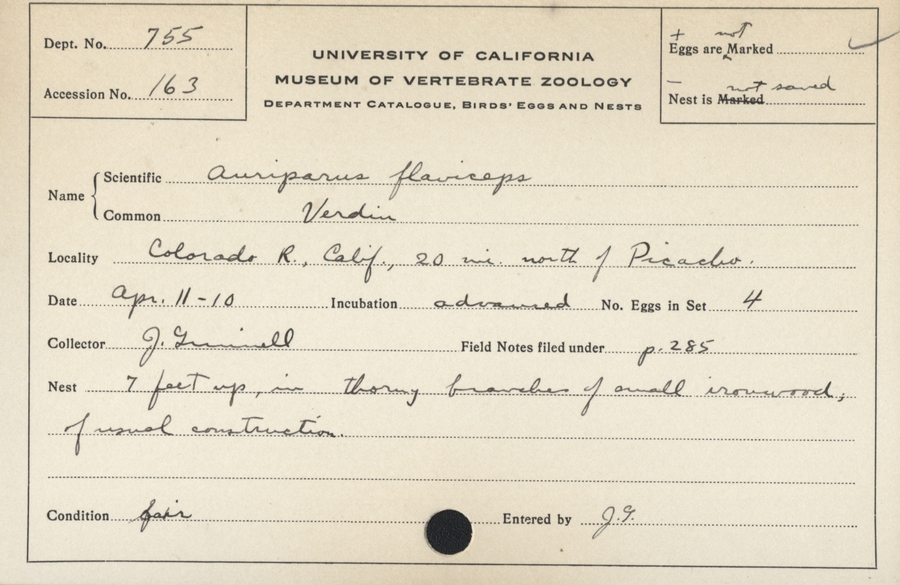 Dept. No. 755
Accession No. 163
UNIVERSITY OF CALIFORNIA
MUSEUM OF VERTEBRATE ZOOLOGY
DEPARTMENT CATALOGUE, BIRDS' EGGS AND NESTS
+ not
Eggs are ‸ Marked
— not saved
Nest is Marked
Name { Scientific Auriparus flaviceps
Common Verdin
Locality Colorado R., Calif., 20 mi. north of Picacho.
Date Apr. 11-10 Incubation advanced No. Eggs in Set 4
Collector J. Grinnell Field Notes filed under p. 285
Nest 7 feet up, in thorny branches of small ironwood;
of usual construction.
Condition fair Entered by J.G.